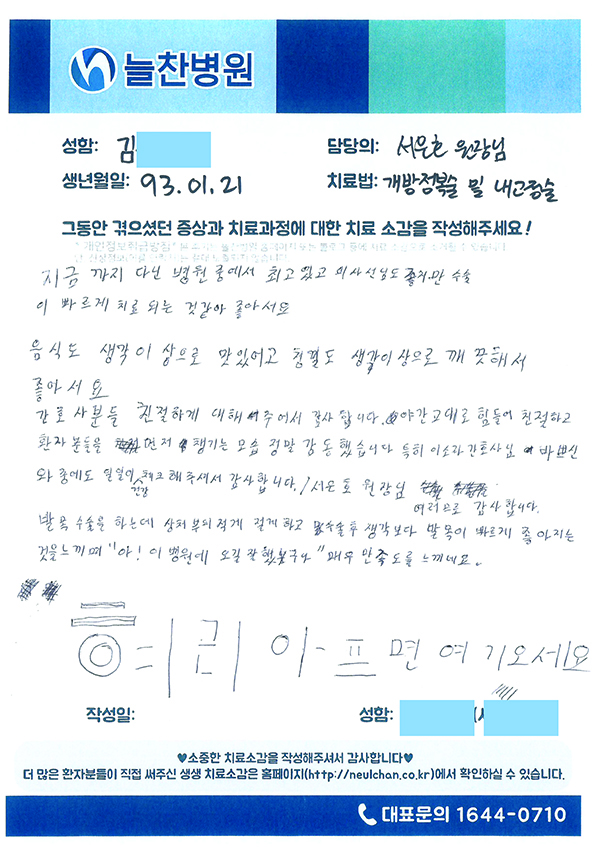 늘찬병원
성함: 김
담당의: 서운호 원장님
생년월일: 93.01.21
치료법: 개방정복술 및 내고정술
그동안 겪으셨던 증상과 치료과정에 대한 치료 소감을 작성해주세요!
지금 까지 다닌 병원 중에서 최고 였고 의사선님도 좋지만 수술
이 빠르게 치료 되는 것같아 좋아서요
음식도 생각 이 상으로 맛있어고 청결도 생각이상으로 깨끗해서
좋아서요
간호사분들 친절하게 대해 주어서 감사 합니다. 야간교대로 힘들어 친절하고
환자 분들을 먼저 챙기는 모습 정말 감동 했습니다 특히 이소라간호사님 바쁘신
와 중에도 일일이 건강 체크 해주셔서 감사합니다. 서운호 원장님
여러으로 감사합니다.
발목 수술을 하는데 상처 부위 적게 절개 하고 수술후 생각보다 발목이 빠르게 좋아지는
것을느끼며 "아! 이 병원에 오길 잘 했보구나" 매우 만족도를 느끼네요.
이 아-프면 여기오세요
작성일:
성함:
♥소중한 치료소감을 작성해주셔서 감사합니다♥
더 많은 환자분들이 직접 써주신 생생 치료소감은 홈페이지(http://neulchan.co.kr)에서 확인하실 수 있습니다.
대표문의 1644-0710